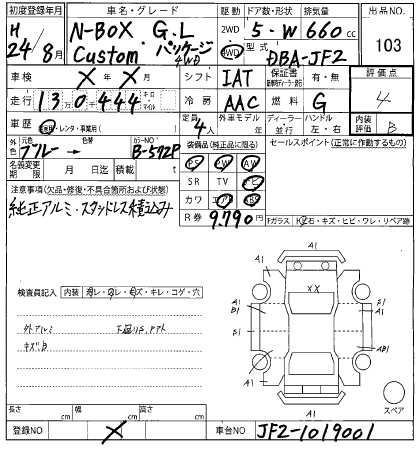 初度登録年月 車名・グレード 駆動 ドア数・形状 排気量 出品NO.
H 24/8月 N-BOX G.L パッケージ 2WD 5・W 660cc 103
Custom 4WD 4WD 型式 DBA-JF2
車検 X年 X月 シフト IAT 保証書 有・無 評価点
走行 130444 キロ マイル 冷房 AAC 燃料 G 4
車歴 自家用・レンタ・事業用( ) 定員 4人 外車モデル 年 ディーラー・並行 ハンドル 左・右 内装評価 B
外色 元色 ブルー → カラーNO B-572P 装備品(純正品に限る) セールスポイント(正常に作動するもの)
名義変更期限 月 日迄 積載 t PS PW AW
注意事項(欠品・修復・不具合箇所および状態) SR TV ナビ
純正アルミ・スタッドレス積込み カワ エアB ABS
R券 9.790円 Fガラス H石・キズ・ヒビ・ワレ・リペア跡
検査員記入 内装 スレ・ヨレ・キズ・キレ・コゲ・穴
外アルミ 下廻りS,アト
キズ、B
A1
XX
A1 A1
B1 B1
A1 AB1
A1
スペア
長さ cm 幅 cm 高さ cm
登録NO X 車台NO JF2-1019001